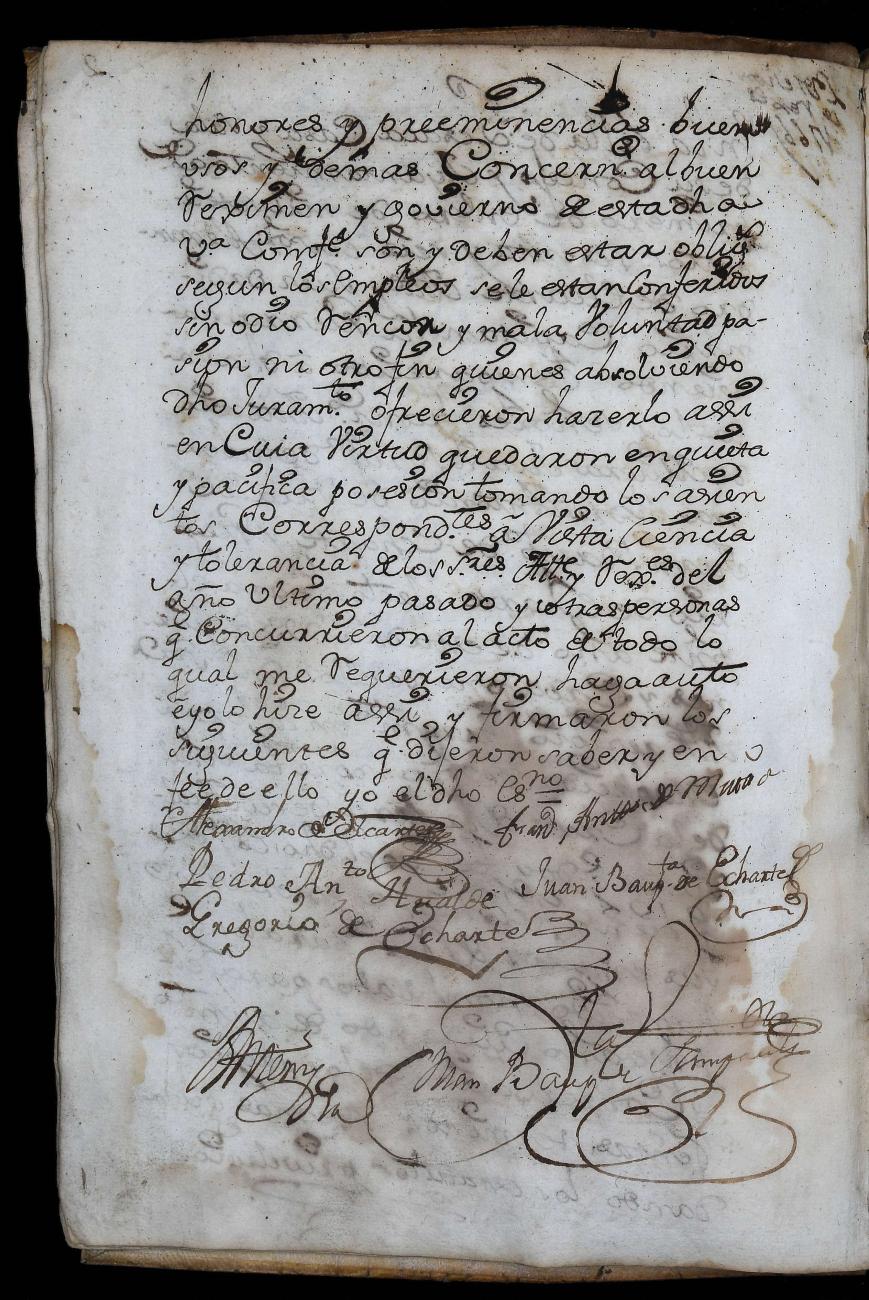 honores y preeminencias buenos
usos y demas Concern.e al buen
Reximen y govierno de esta dha
V.a Comfe. son y deben estar oblig
segun los Empleos se le estan Conferidos
sin odio Rencor y mala Voluntad pa-
sion ni otro fin quienes absolviendo
dho Juram.to ofrecieron hazerlo assi
en Cuia Virtud quedaron en quieta
y pacifica posesion tomando los asien
tos Correspond.tes a Vista Ciencia
y tolerancia de los s.res Alle. y Rex.es del
año Ultimo pasado y otras personas
q. Concurrieron al acto de todo lo
qual me Requerieron haga auto
e yo lo hize assi y firmaron los
siguientes q.e dijeron saber y en
fee de ello yo el dho Es.no =
Alexandro de Elcarte
Fran.co Anto.
Pedro An.to Ualde Juan Baup.ta de Echarte
Gregorio de Echarte
Ante my
Juan Baup.